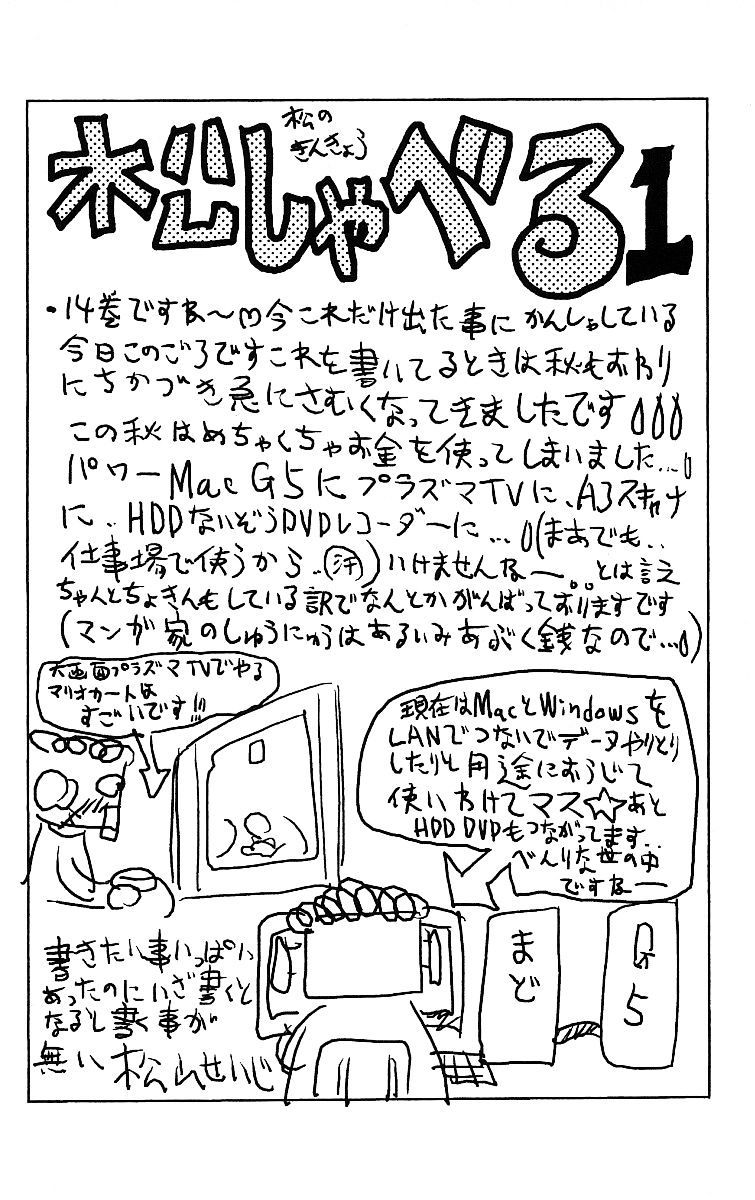 松しゃべる1
松の
きんきょう
・14巻ですね〜m今これだけ出た事にかんしゃしている
今日このごろですこれを書いてるときは秋もおわり
にちかづき急にさむくなってきましたです
この秋はめちゃくちゃお金を使ってしまいました...
パワーMacG5にプラズマTVに、A3スキャナ
に、HDDないぞうDVDレコーダーに...(まあでも..
仕事場で使うから..(汗))いけませんなー..とは言え
ちゃんとちょきんもしている訳でなんとかがんばっておりますです
(マンガ家のしゅうにゅうはあるいみあぶく銭なので...)
大画面プラズマTVでやる
マリオカートは
すごいです!!!
現在はMacとWindowsを
LANでつないでデータやりとり
したりと用途におうじて
使いわけてマス☆あと
HDDDVDもつながってます..
べんりな世の中
ですなー
書きたい事いっぱい
あったのにいざ書くと
なると書く事が
無い 松山せいじ
まど
G5